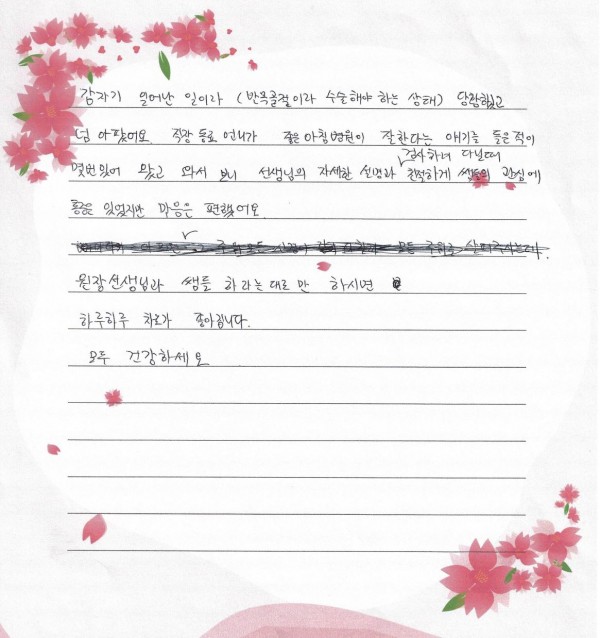 갑자기 일어난 일이라 (반목골절이라 수술해야 하는 상태) 당황했고
넘 아팠어요. 직장 동료 언니가 좋은아침병원이 잘한다는 얘기를 들은적이
몇번있어 왔고 와서 보니 선생님의 자세한 설명과 검사하러 다닐때 친절하게 쌤들의 관심에
통증은 있었지만 마음은 편했어요.
원장선생님과 쌤들 하라는 대로만 하시면
하루하루 치료가 좋아집니다.
모두 건강하세요